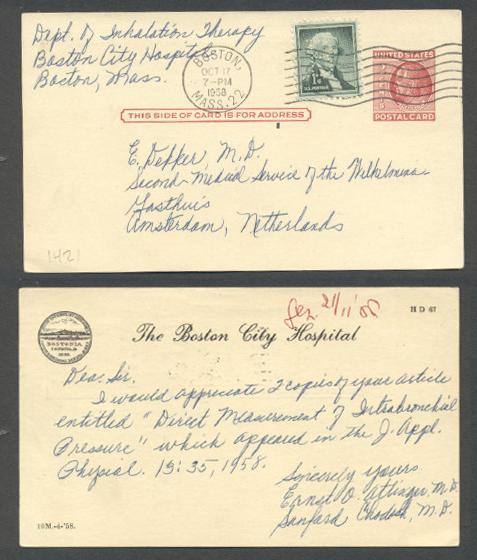 Dept. of Inhalation Therapy
Boston City Hospital
Boston, Mass.
BOSTON,
OCT 17
7-PM
1958
MASS. 22
1¢
U.S. POSTAGE
UNITED STATES
POSTAL CARD
THIS SIDE OF CARD IS FOR ADDRESS
E. Dekker, M.D.
Second Medical Service of the Wilhelmina
Gasthuis
Amsterdam, Netherlands
1421
21/11 '58
H D 67
BOSTONIA
The Boston City Hospital
Dear Sir.
I would appreciate 2 copies of your article
entitled "Direct Measurement of Intrabronchial
Pressure" which appeared in the J. Appl.
Physiol. 13:35, 1958.
Sincerely yours
Ernst O. Attinger, M.D.
Sanford Chodosh, M.D.
10M.-4-'58.